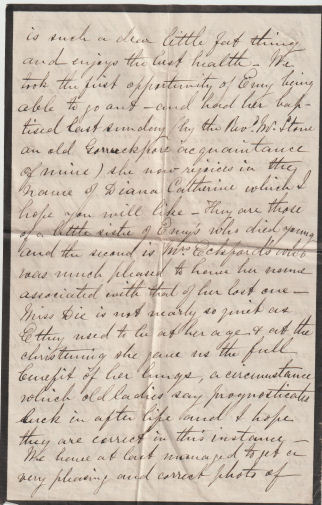 is such a dear little fat thing
and enjoys the best health - We
took the first opportunity of Emy being
able to go out - and had her bap-
tised last sunday by the Revd Mr. Stone
an old Goruckpore acquaintance
of mine) she now rejoices in the
name of Diana Catherine which I
hope you will like - They are those
of a little sister of Emy's who died young
and the second is Mrs Eckford's who
was much pleased to have her name
associated with that of her lost one -
Miss Die is not nearly so quiet as
Etty used to be at her age & at the
christening she gave us the full
benefit of her lungs, a circumstance
which old ladies say prognosticates
luck in after life and I hope
they are correct in this instance -
We have at last managed to get a
very pleasing and correct photo of